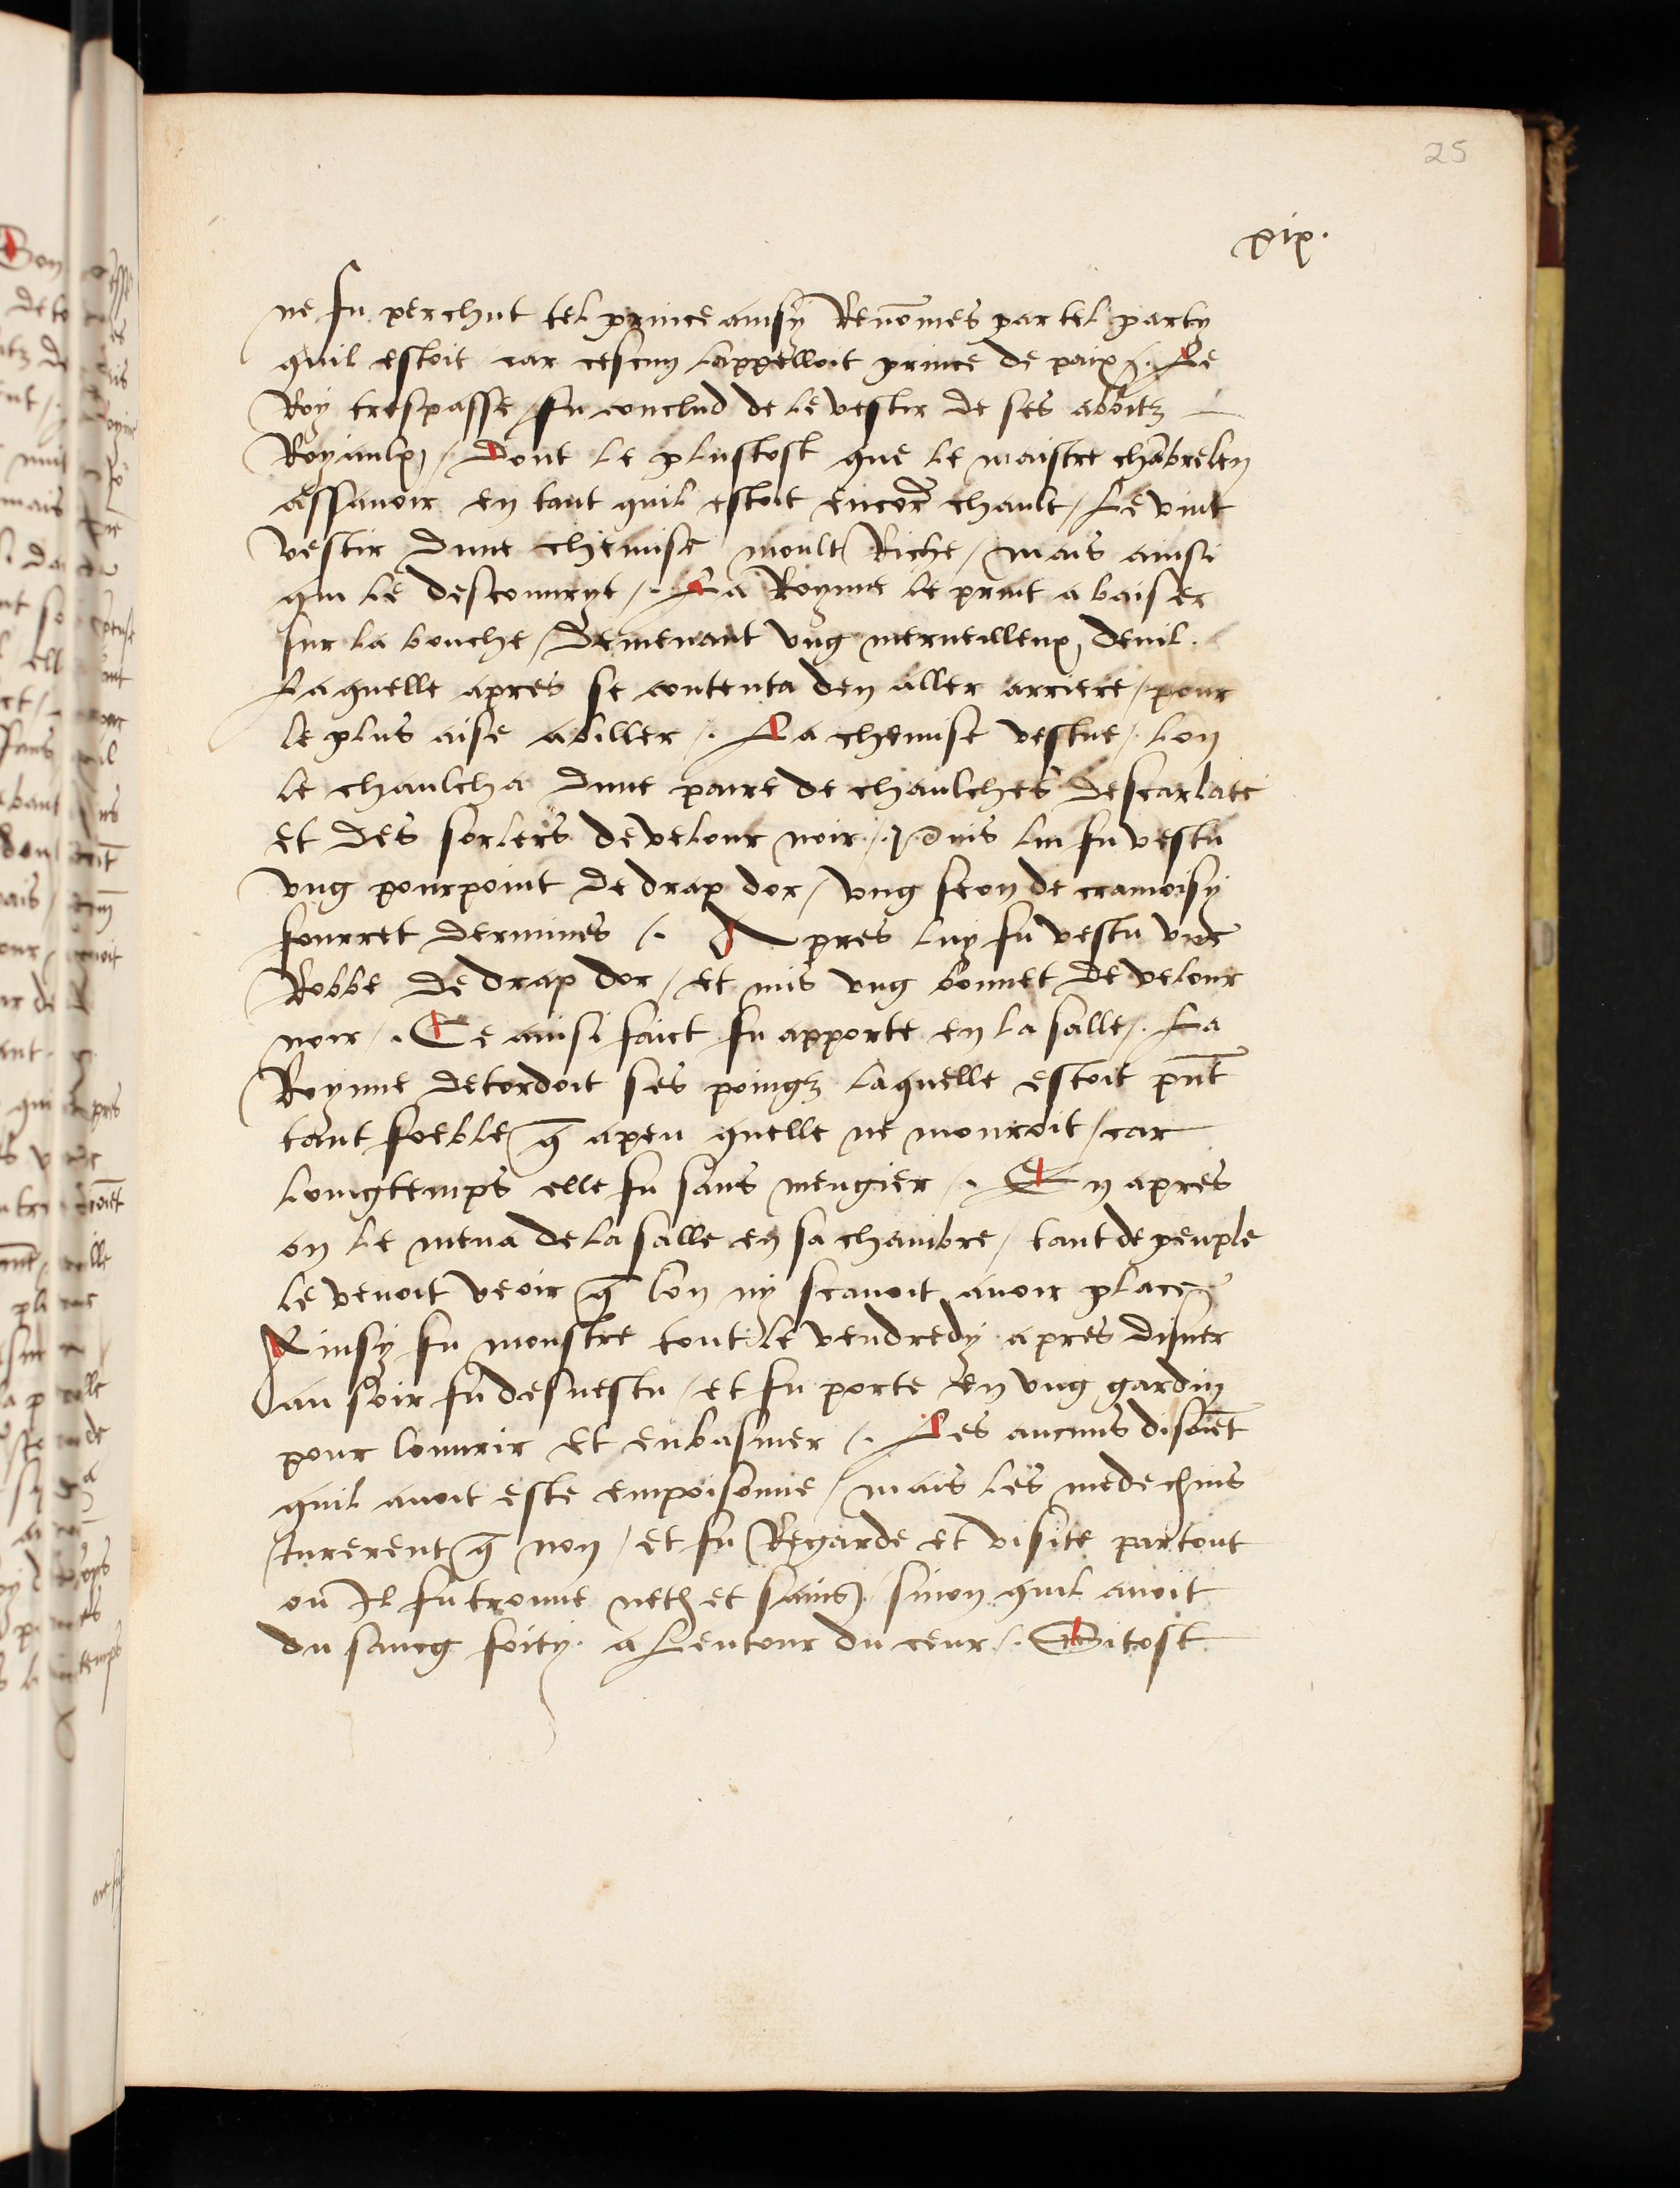 25
xix.
ne fu perchut tel prince ainsy Renōmes par tel party
quil estoit car cescun lappelloit prince de paix /. Le
Roy trespasse / fu conclud de le vestir de ses abbitz
Royaulx /. Dont le plustost que le maistre chābrelen
assavoir en tant quil estoit encor̄ chault / Le vint
vestir dune chemise moult Riche / mais ainsi
qui le descouvryt /. La Roynne le print a baiser
sur la bouche / Demenant ung merveilleux deuil.
Laquelle apres se contenta den aller arriere / pour
le plus aise abiller /. La chemise vestue / lon
le chaulcha dune paire de chaulches descarlate
et des sorlers de velour noir /. Puis lui fu vestu
ung pourpoint de drap dor / ung seon de cramoisy
fourret dermines /. Apres luy fu vestu une
Robbe de drap dor / et mis ung bonnet de velour
noir /. Ce ainsi faict fu apporte en la salle /. La
Roynne detordoit ses poingz laquelle estoit pn̄t
tant foeble q̄ apeu quelle ne mouroit / car
loingtemps elle fu sans mengier /. En apres
on le mena de la salle en sa chambre / tant de peuple
le venoit veoir q̄ lon ny scavoit avoir place
Ainsy fu monstre tout le vendredy apres disner
au soir fu desvestu / et fu porte en ung gardin
pour louvrir et enbasmer /. Les aucuns disoiēt
quil avoit este empoisonne / mais les medechins
Jurerent q̄ non / et fu Regarde et visite partout
ou Il fu trouve neth et sains / sinon quil avoit
du sancg foity. a Lentour du ceur /. Sitost